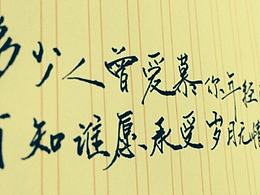 多少人曾爱慕你年轻
可知谁愿承受岁月无情